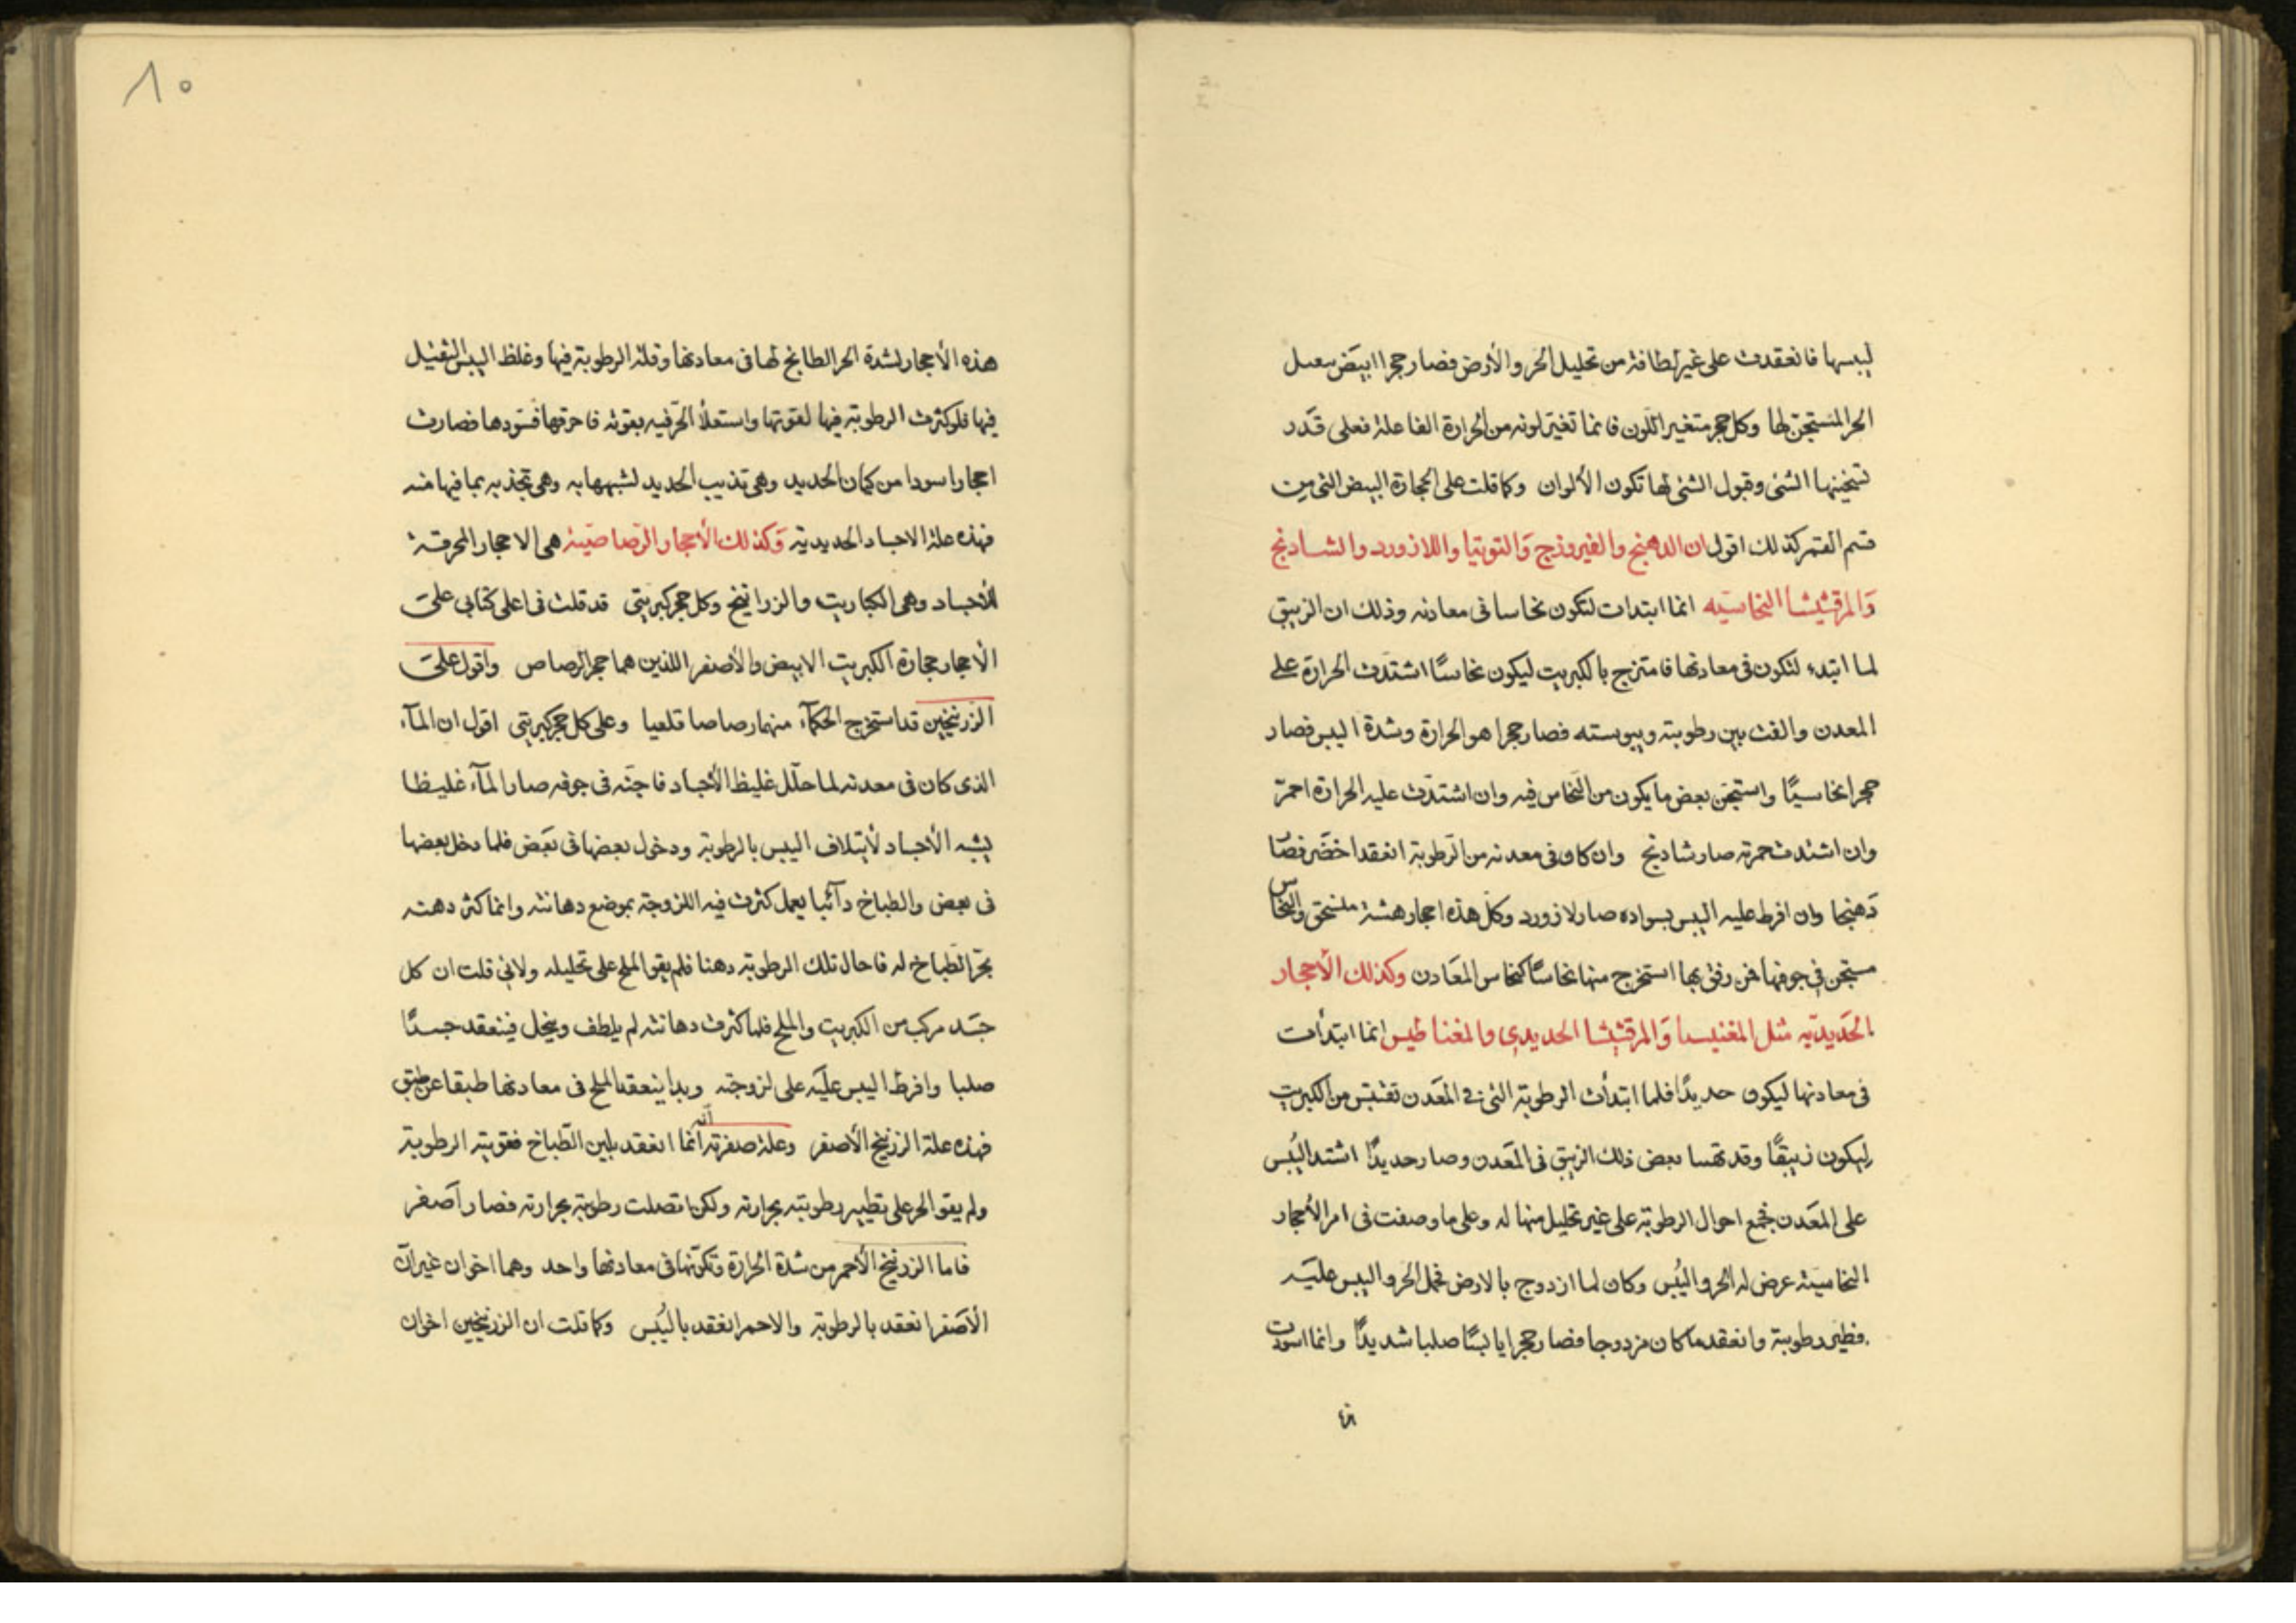 ليبسها فانعقدت على غير لطافة من تحليل الحر والأرض فصار حجرا ابيض بعمل
الحر المستجن لها وكل حجر متغير اللون فانما تغير لونه من الحرارة الفاعلة فعلى قدر
تسخينها الشئ وقبول الشئ لها تكون الألوان وكما قلت على الحجارة البيض التى من
قسم القمر كذلك اقول ان الدهنج والفيروزج والتوتيا واللازورد والشادنج
والمرقشيشا النحاسيه انما ابتدات لتكون نحاسا فى معادنه وذلك ان الزيبق
لما ابتدء لتكون فى معادنها فامتزج بالكبريت ليكون نحاسًا اشتدت الحرارة على
المعدن والفت بين رطوبته ويبوسته فصار حجرا هو الحرارة وشدة اليبس فصار
حجرا نحاسيًا واستجن بعض ما يكون من النحاس فيه وان اشتدت عليه الحرارة احمرّ
وان اشتدت حمرته صار شادنج وان كان فى معدنه من الرطوبة انعقد اخضر فصار
دهنجا وان افرط عليه اليبس بسواده صار لازورد وكل هذه احجار هشة والنحاس
مستجن فى جوفها فمن رفق بها استخرج منها نحاسًا كنحاس المعادن وكذلك الأحجار
الحديديه مثل المغنيسا والمرقشيشا الحديدى والمغناطيس انما ابتدأت
فى معادنها ليكون حديدًا فلما ابتدأت الرطوبة التى فى المعدن تقتبس من الكبريت
ليكون زيبقًا وقد تهيا بعض ذلك الزيبق فى المعدن وصار حديدًا اشتد اليُبس
على المعدن فجمع احوال الرطوبة على غير تحليل منها له وعلى ما وصفت فى امر الأحجار
النحاسية عرض له الحر واليُبس وكان لما ازدوج بالارض فحمل الحر واليبس عليه
فطير رطوبته وانعقد ما كان مزدوجا فصار حجرا يابسًا صلبا شديدًا وانما اسودت
هذه
١٠
هذه الأحجار لشدة الحر الطابخ لها فى معادنها وقلة الرطوبة فيها وغلظ اليبس الثقيل
فيها فلو كثرت الرطوبة فيها لقوتها واستعلا الحر فيه بقوته فاحرقها فسودها فصارت
احجارا سودا من كيان الحديد وهى تذيب الحديد لشبهها به وهى تجذبه بما فيها منه
فهذه علة الاجساد الحديدية وكذلك الأحجار الرصاصية هى الاحجار المحرقة
للأجساد وهى الكباريت والزرانيخ وكل حجر كبريتى قد قلت فى اعلى كتابى على
الأحجار حجارة الكبريت الابيض والأصفر اللذين هما حجر الرصاص واقول على
الزرنيخين قد استخرج الحكمآء منهما رصاصا قلعيا وعلى كل حجر كبريتى اقول ان المآء
الذى كان فى معدنه لما حلّل غليظ الأجساد فاجنّه فى جوفه صار المآء غليظا
يشبه الأجساد لأيتلاف اليبس بالرطوبة ودخول بعضها فى بعض فلما دخل بعضها
فى بعض والطباخ دآئبا يعمل كثرت فيه اللزوجة بموضع دهانته وانما كثر دهنه
بحرّ الطباخ له فاحال تلك الرطوبة دهنا فلم يقو الملح على تحليله ولانى قلت ان كل
جسد مركب من الكبريت والملح فلما كثرت دهانته لم يلطف وينحل فينعقد جسدًا
صلبا وافرط اليبس عليه على لزوجته وبدا ينعقد الملح فى معادنها طبقا عن طبق
فهذه علة الزرنيخ الأصفر وعلة صفرته انه انما انعقد بلين الطباخ فقويته الرطوبة
ولم يقو الحر على تطيير رطوبته بحرارته ولكن اتصلت رطوبته بحرارته فصار أصفر
فاما الزرنيخ الأحمر من شدة الحرارة وتكونها فى معادنها واحد وهما اخوان غير ان
الأصفر انعقد بالرطوبة والاحمر انعقد باليُبس وكما قلت ان الزرنيخين اخوان